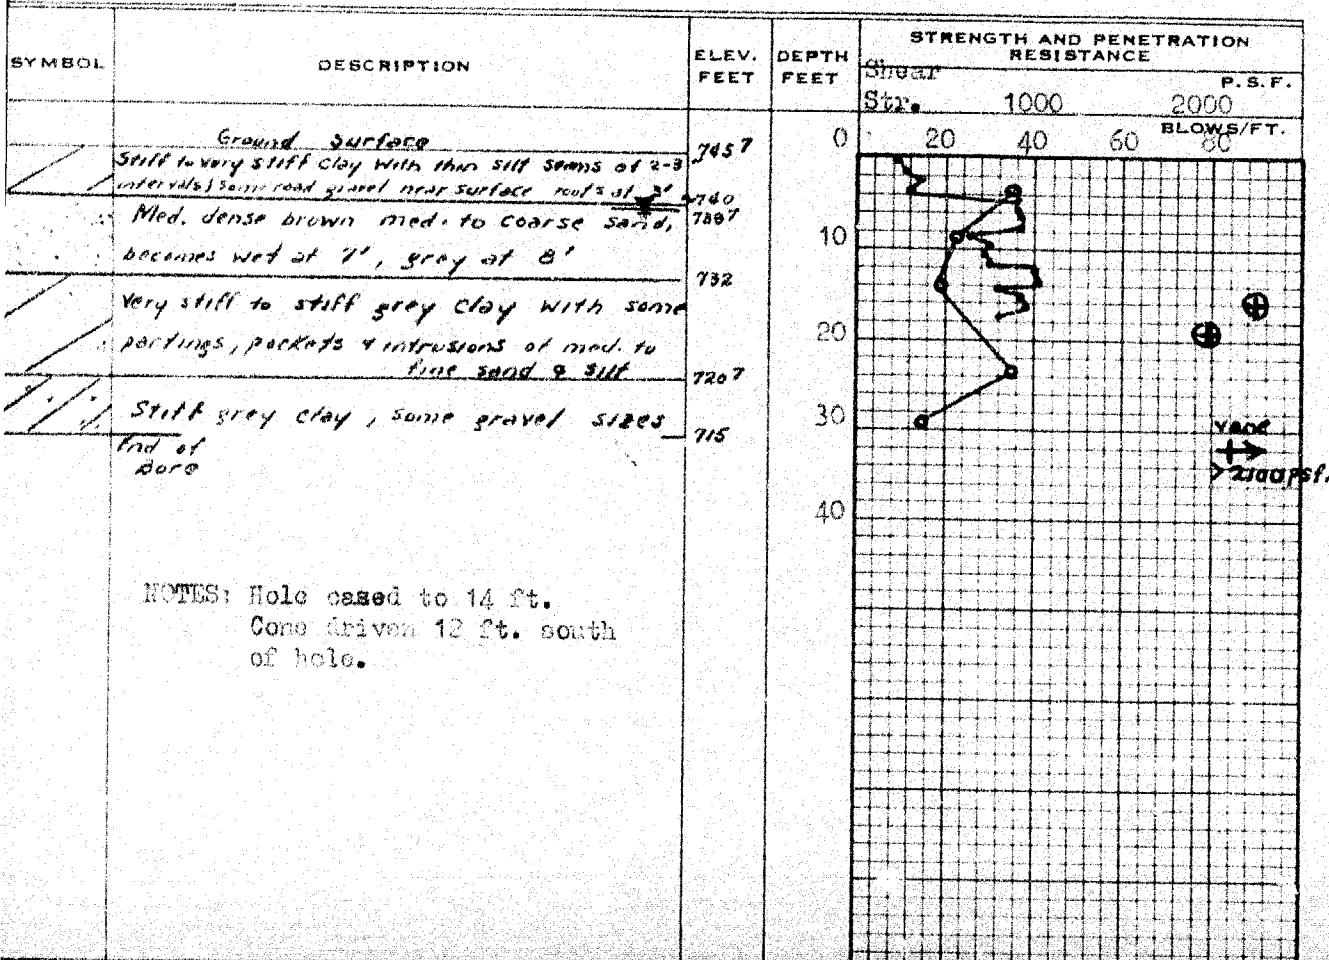 SYMBOL DESCRIPTION ELEV. FEET DEPTH FEET STRENGTH AND PENETRATION RESISTANCE
Shear Str. 1000 2000 P.S.F.
0 20 40 60 80 BLOWS/FT.
Ground Surface 745.7
Stiff to very stiff Clay with thin silt seams at 2-3
intervals, some road gravel near surface roots at 3' 740
Med. dense brown med. to coarse sand,
becomes wet at 7', grey at 8' 10
732
Very stiff to stiff grey Clay with some
partings, pockets & intrusions of med. to 20
fine sand & silt 720.7
Stiff grey clay, some gravel sizes 30
715
End of
Bore
>2100 psf.
40
NOTES: Hole cased to 14 ft.
Cone driven 12 ft. south
of hole.